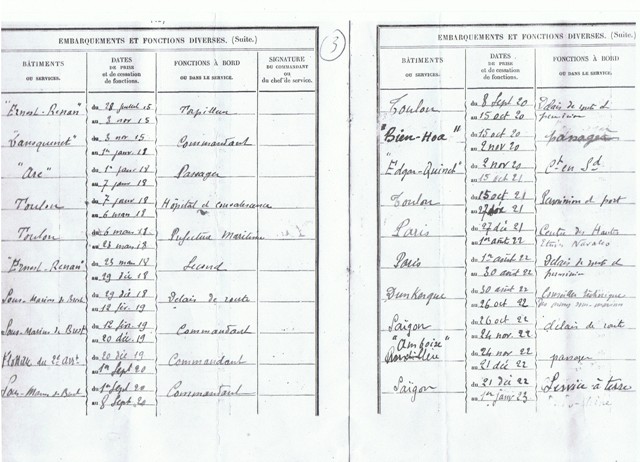 EMBARQUEMENTS ET FONCTIONS DIVERSES. (Suite.)
BÂTIMENTS
OU SERVICES.
DATES
DE PRISE
et de cessation
de fonctions.
FONCTIONS À BORD
OU DANS LE SERVICE.
SIGNATURE
DU COMMANDANT
OU
du chef de service.
"Ernest-Renan"
du 28 juillet 15
au 3 nov 15
du 3 nov 15
Commandant
au 1er janv 18
"Arc"
du 1er janv 18
Passager
au 7 janv 18
Toulon
du 7 janv 18
Hôpital et convalescence
au 6 mars 18
Toulon
du 6 mars 18
Préfecture Maritime
au 23 mars 18
"Ernest-Renan"
du 23 mars 18
Second
au 29 déc 18
Sous-Marins de Brest
du 29 déc 18
Délais de route
au 12 fév 19
Sous-Marins de Brest
du 12 fév 19
Commandant
au 20 déc 19
du 2e
du 20 déc 19
Commandant
au 1er Sept 20
Sous-Marins de Brest
du 1er Sept 20
Commandant
au 8 Sept 20
3
EMBARQUEMENTS ET FONCTIONS DIVERSES. (Suite.)
BÂTIMENTS
OU SERVICES.
DATES
DE PRISE
et de cessation
de fonctions.
FONCTIONS À BORD
OU DANS LE SERVICE.
Toulon
du 8 Sept 20
Délais de route et
au 15 oct 20
permission
"Bien-Hoa"
du 15 oct 20
passager
au 2 nov 20
"Edgar-Quinet"
du 2 nov 20
Ct en Sd
au 15 oct 21
Toulon
du 15 oct 21
Permission et port
au 27 déc 21
Paris
du 27 déc 21
Centre des Hautes
au 1er août 22
Etudes Navales
Paris
du 1er août 22
Délais de route et
au 30 août 22
permission
Dunkerque
du 30 août 22
Conseiller technique
au 26 oct 22
Saïgon
du 26 oct 22
délais de route
au 24 nov 22
"Amboise"
du 24 nov 22
passager
au 21 déc 22
Saïgon
du 21 déc 22
Service à terre
au 1er janv 23